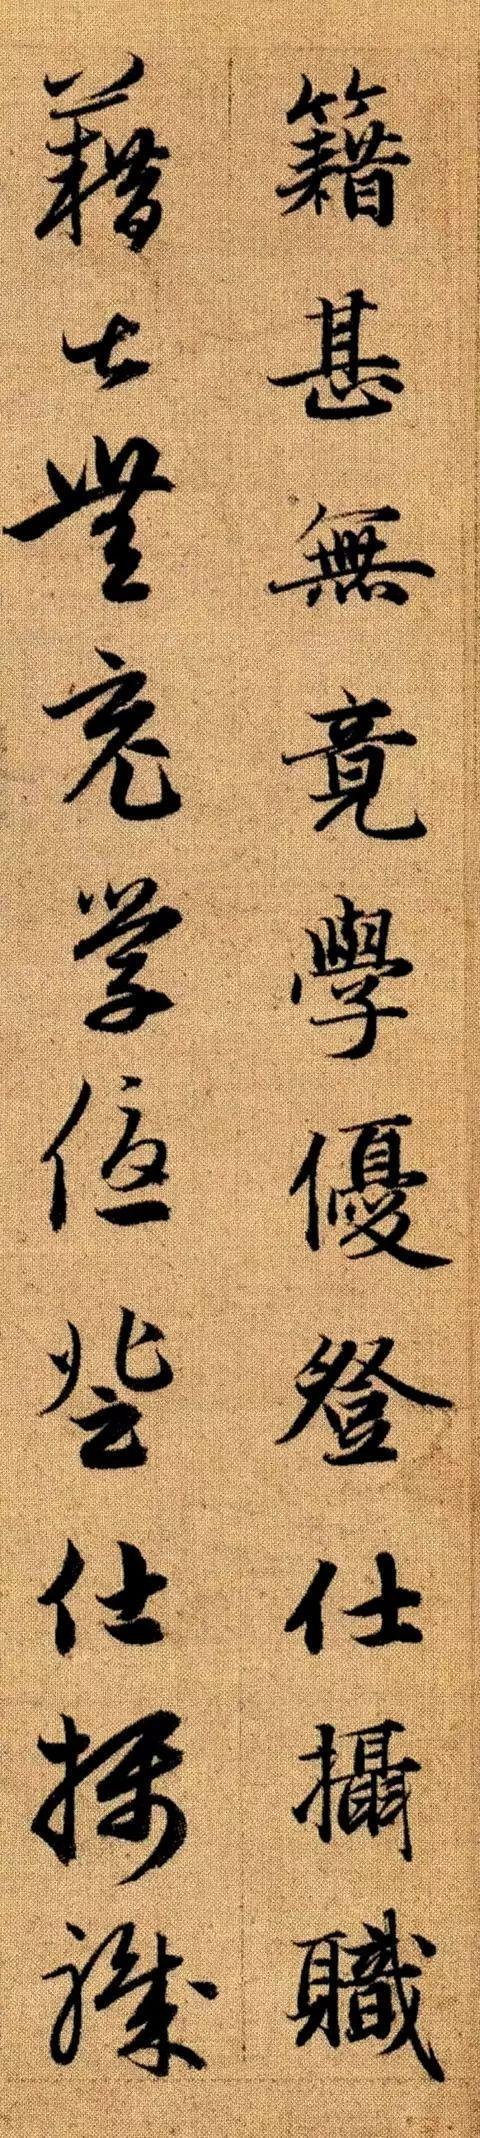 籍甚無竟學優登仕攝職
藉甚無竟學優登仕攝職